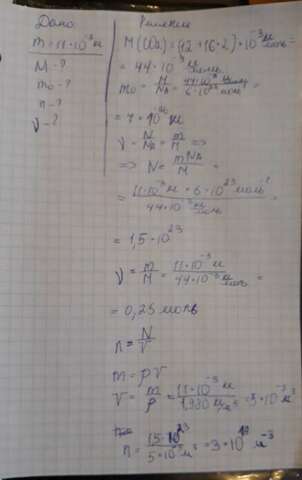 Дано:
m = 11·10⁻³ кг
M - ?
m₀ - ?
n - ?
ν - ?
Решение
M(CO₂) = (12 + 16·2)·10⁻³ кг/моль =
= 44·10⁻³ кг/моль
m₀ = M/Nₐ = 44·10⁻³ кг/моль / 6·10²³ моль⁻¹ =
ν = N/Nₐ = m/M ⇒
⇒ N = mNₐ/M =
= 11·10⁻³ кг · 6·10²³ моль⁻¹ / 44·10⁻³ кг/моль
= 1,5·10²³
ν = m/M = 11·10⁻³ кг / 44·10⁻³ кг/моль =
= 0,25 моль
n = N/V
m = ρV
V = m/ρ = 11·10⁻³ кг
n = 1,5·10²³